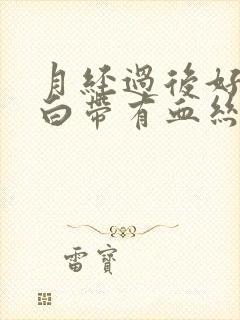 月經過後好
白帶有血絲
雷寶